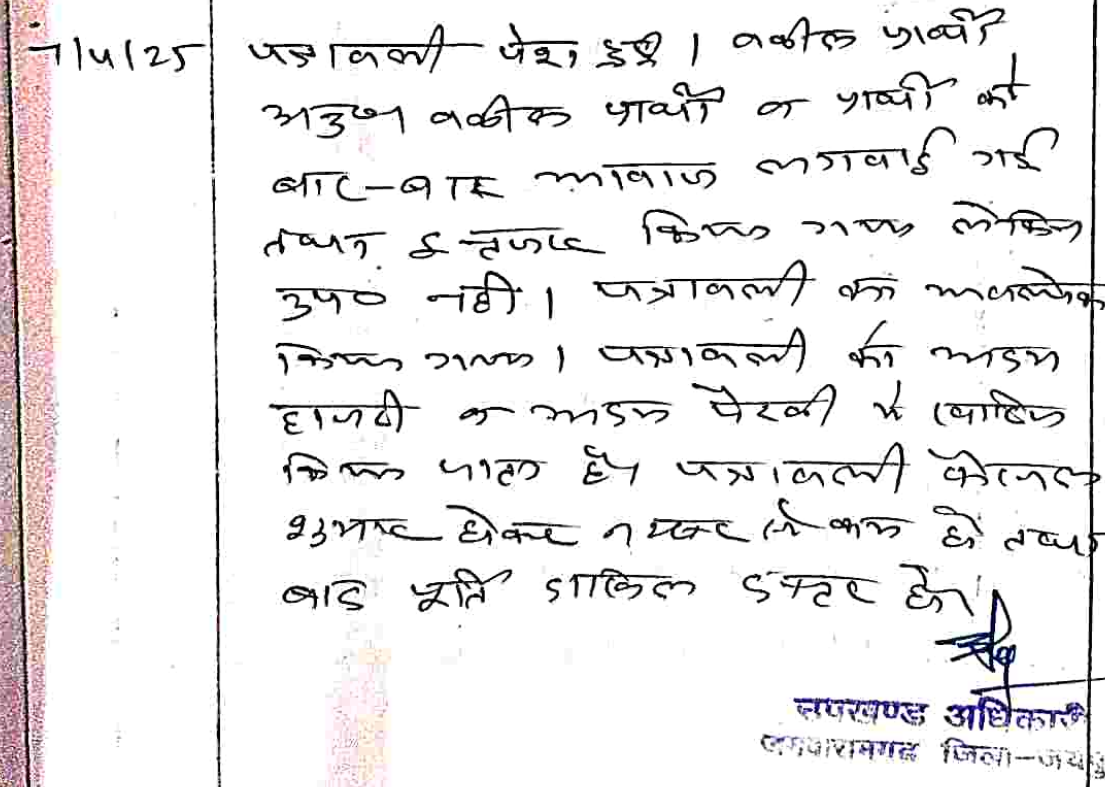 7/4/25 पत्रावली पेश हुई । वकील प्रार्थी
अनु० वकील प्रार्थी व प्रार्थी को
बार-बार आवाज लगवाई गई
तथा इन्तजार किया गया लेकिन
उप० नही । पत्रावली का अवलोकन
किया गया । पत्रावली को अदम
हाजरी व अदम पैरवी में खारिज
किया जाता है। पत्रावली फैसल
शुमार होकर नम्बर से कम हो तथा
बाद पूर्ति दाखिल दफ्तर हो।
उपखण्ड अधिकारी
जमवारामगढ जिला-जयपु